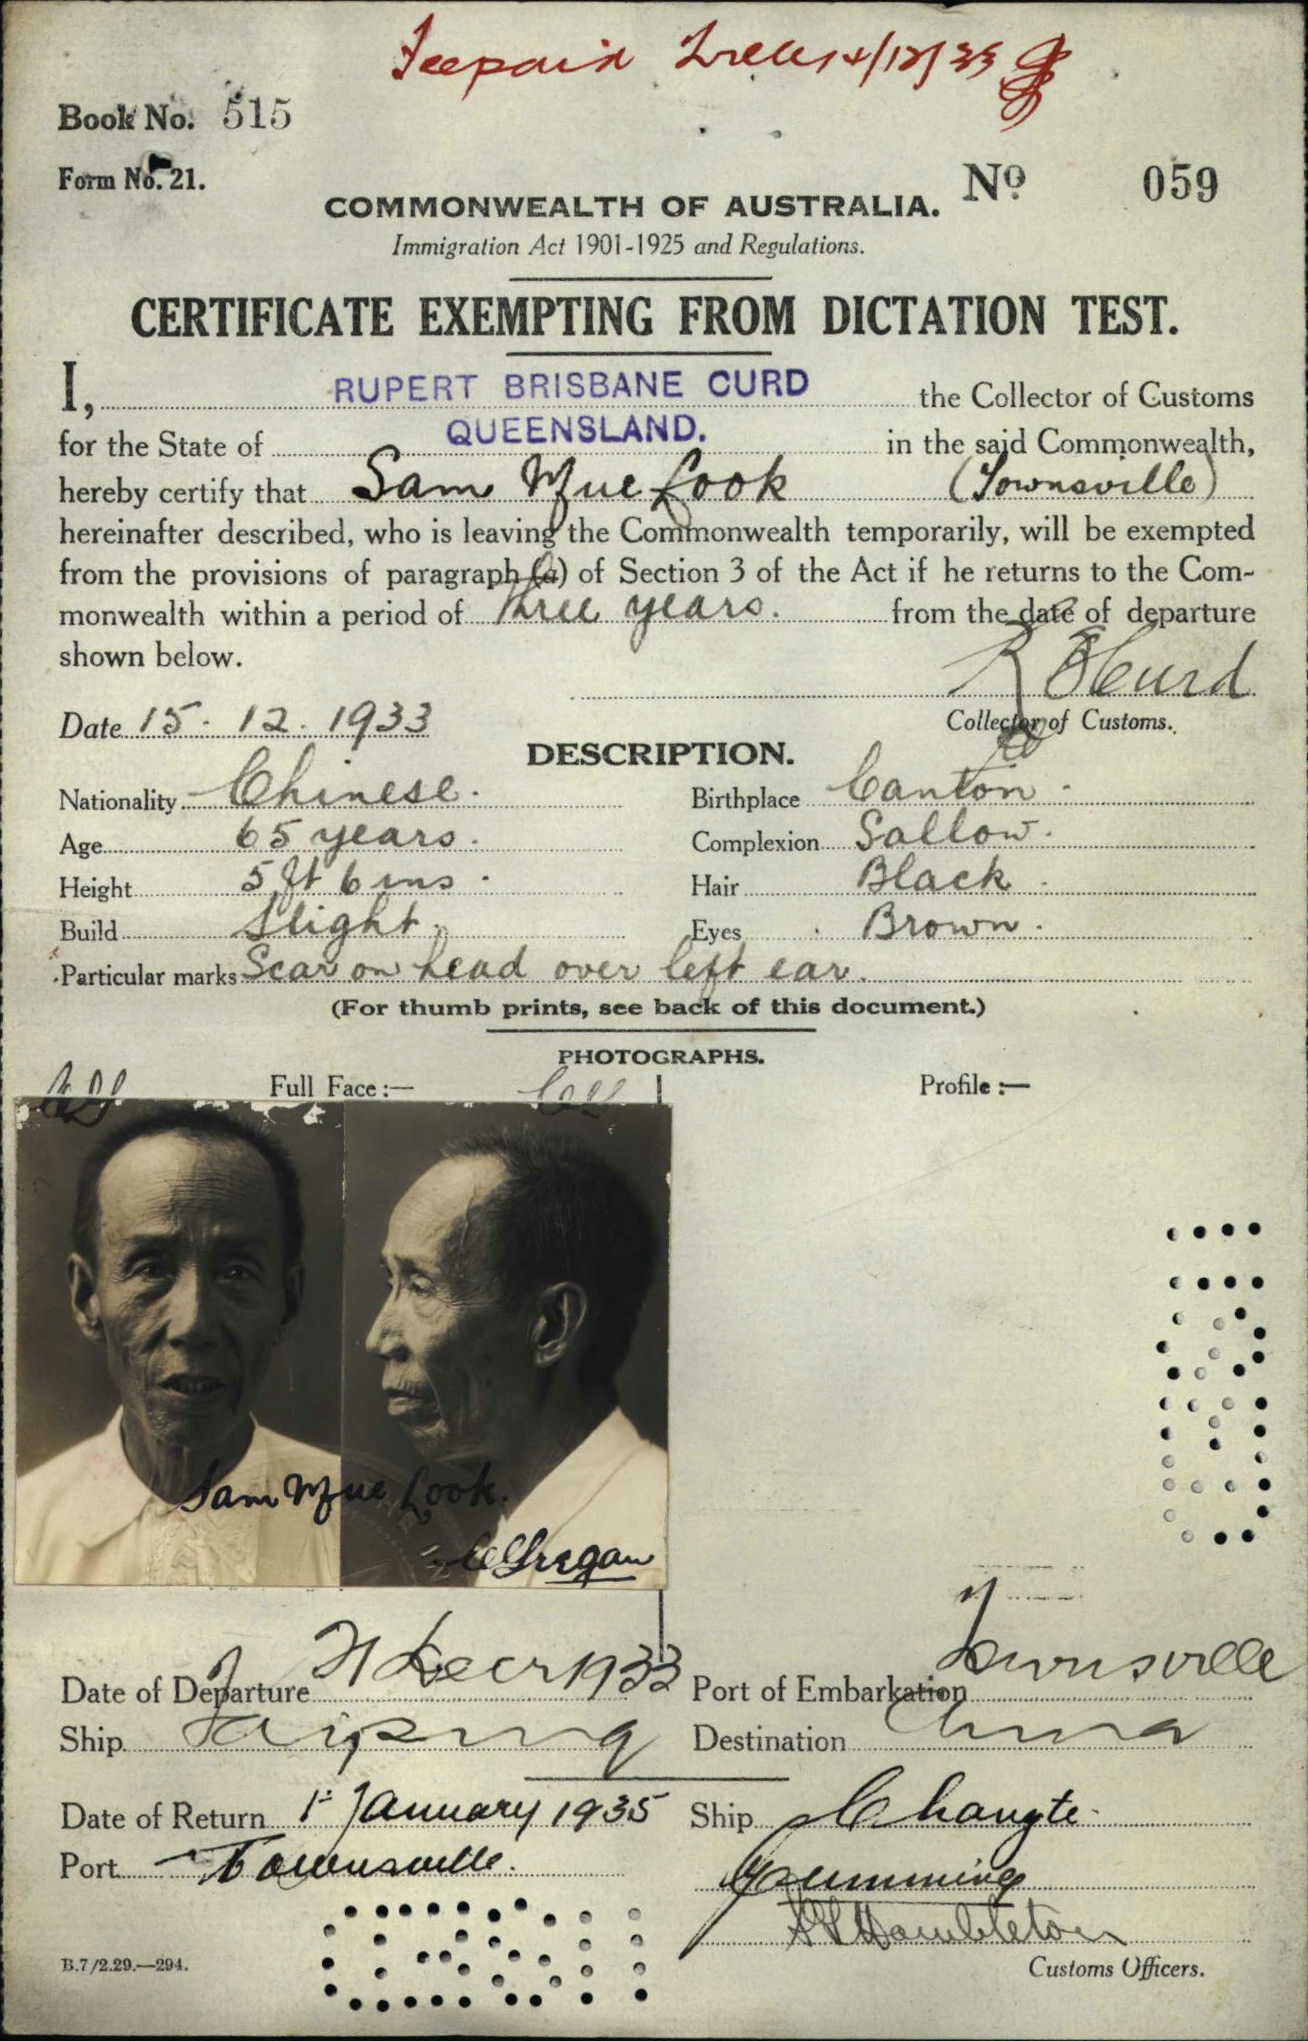 Fee paid 4/12/33
Book No. 515
Form No. 21.
No 059
COMMONWEALTH OF AUSTRALIA.
Immigration Act 1901-1925 and Regulations.
CERTIFICATE EXEMPTING FROM DICTATION TEST.
I, RUPERT BRISBANE CURD the Collector of Customs
for the State of QUEENSLAND. in the said Commonwealth,
hereby certify that Sam Mue Look (Townsville)
hereinafter described, who is leaving the Commonwealth temporarily, will be exempted
from the provisions of paragraph (a) of Section 3 of the Act if he returns to the Com-
monwealth within a period of three years. from the date of departure
shown below.
R B Curd
Date 15. 12. 1933
Collector of Customs.
DESCRIPTION.
Nationality Chinese. Birthplace Canton.
Age 65 years. Complexion Sallow.
Height 5 ft 6 ins. Hair Black.
Build Slight. Eyes Brown.
Particular marks Scar on head over left ear.
(For thumb prints, see back of this document.)
PHOTOGRAPHS.
Full Face:— Profile:—
Sam Mue Look.
Date of Departure 21 Decr 1933 Port of Embarkation Townsville
Ship Taiping Destination China
Date of Return 1st January 1935 Ship Changte
Port Townsville.
Cumming
Hambleton
B.7/2.29.—294.
Customs Officers.